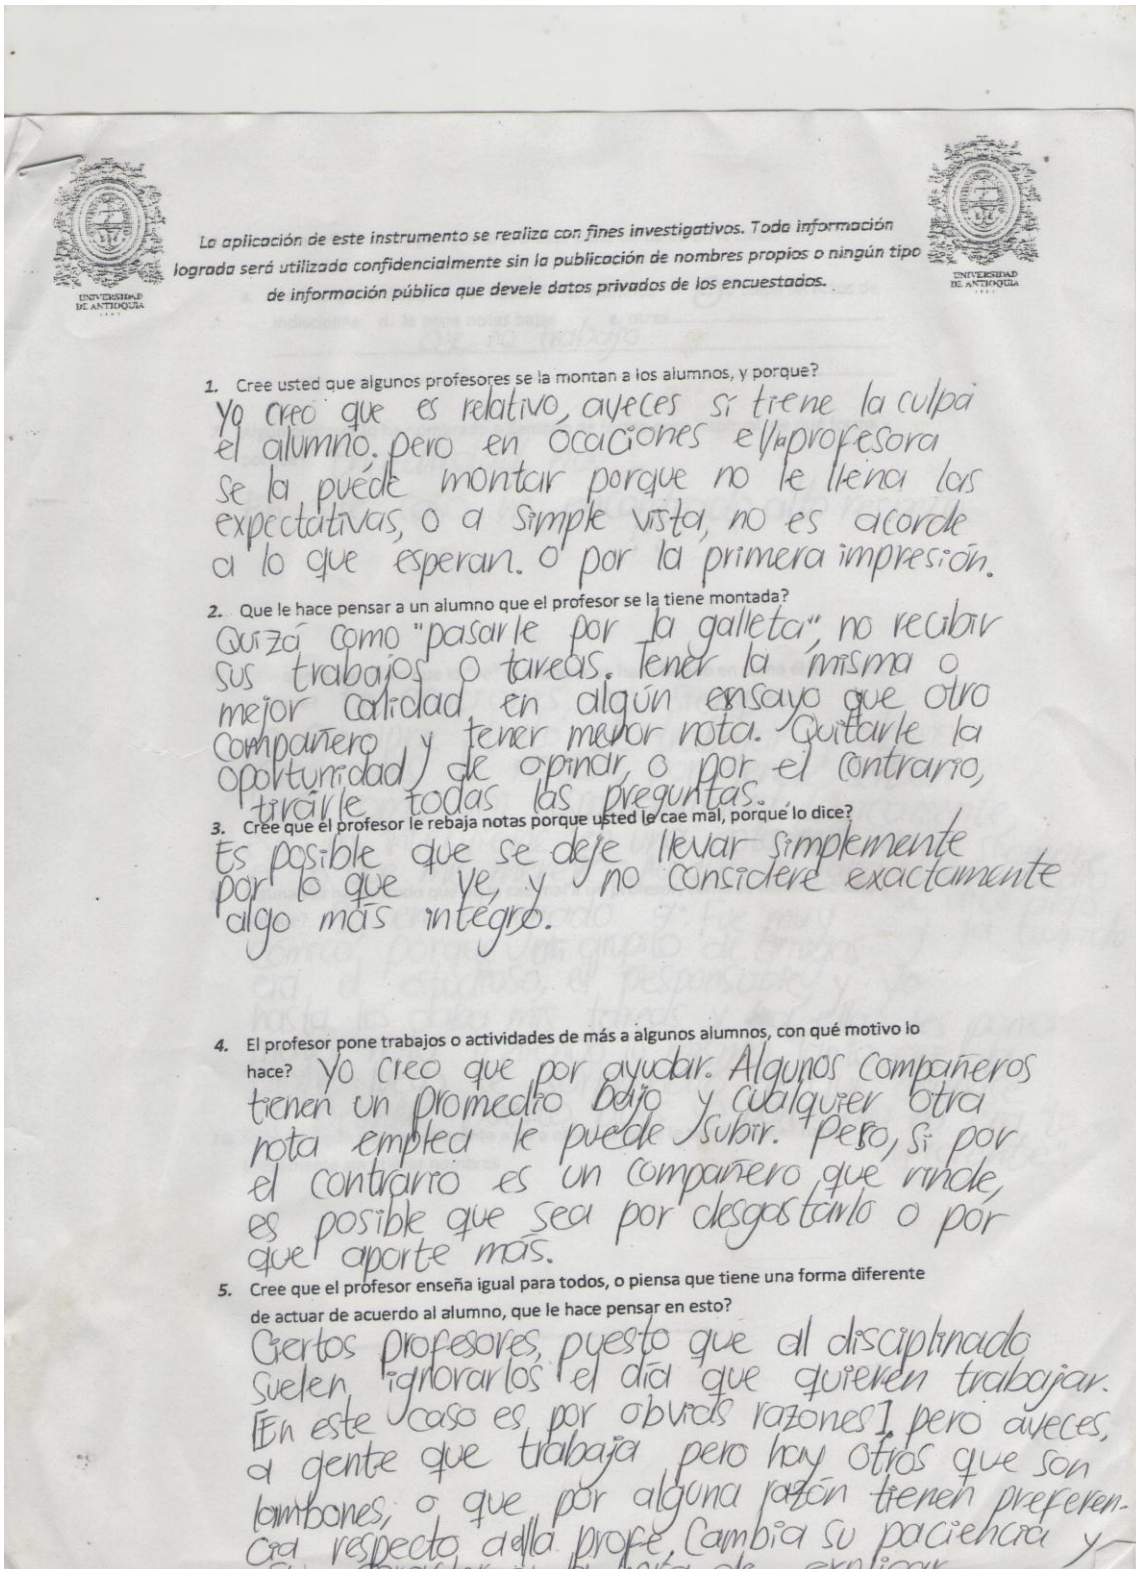 La aplicación de este instrumento se realiza con fines investigativos. Toda información
lograda será utilizada confidencialmente sin la publicación de nombres propios o ningún tipo
de información pública que devele datos privados de los encuestados.
UNIVERSIDAD
DE ANTIOQUIA
UNIVERSIDAD
DE ANTIOQUIA
1. Cree usted que algunos profesores se la montan a los alumnos, y porque?
Yo creo que es relativo, aveces sí tiene la culpa
el alumno. pero en ócaciones el/la profesora
se la puede montar porque no le llena las
expectativas, o a simple vista, no es acorde
a lo que esperan. o por la primera impresión.
2. Que le hace pensar a un alumno que el profesor se la tiene montada?
Quizá como "pasarle por la galleta", no recibir
sus trabajos o tareas. Tener la misma o
mejor calidad en algún ensayo que otro
compañero y tener menor nota. Quitarle la
oportunidad de opinar, o por el contrario,
tirárle todas las preguntas.
3. Cree que el profesor le rebaja notas porque usted le cae mal, porque lo dice?
Es posible que se deje llevar simplemente
por lo que ve, y no considere exactamente
algo más integro.
4. El profesor pone trabajos o actividades de más a algunos alumnos, con qué motivo lo
hace? Yo creo que por ayudar. Algunos compañeros
tienen un promedio bajo y cualquier otra
nota emplea le puede subir. Pero, si por
el contrario es un compañero que rinde,
es posible que sea por desgastarlo o por
que aporte más.
5. Cree que el profesor enseña igual para todos, o piensa que tiene una forma diferente
de actuar de acuerdo al alumno, que le hace pensar en esto?
Ciertos profesores, puesto que al disciplinado
suelen ignorarlos el día que quieren trabajar.
[En este caso es por obvias razones], pero aveces,
a gente que trabaja pero hay otros que son
lambones, o que por alguna razón tienen preferen-
cia respecto profe, Cambia su paciencia y